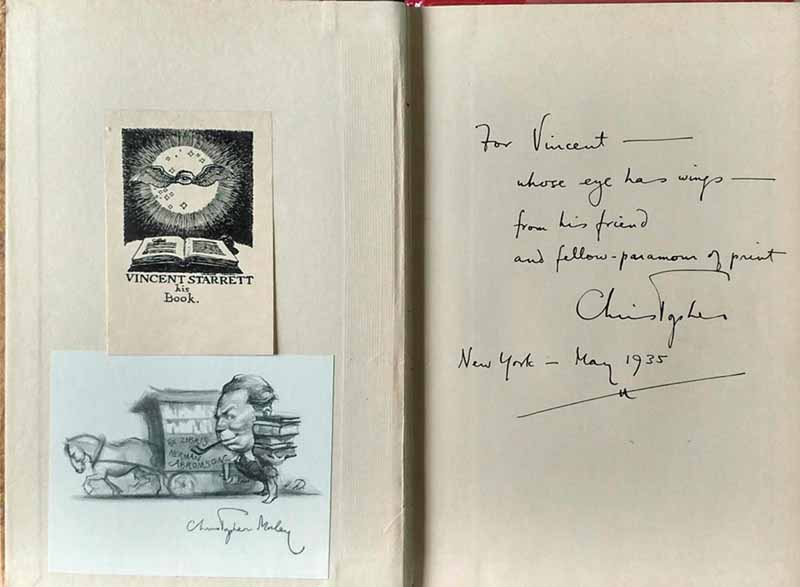 VINCENT STARRETT
his
Book.
EX LIBRIS
HERMAN
ABROMSON
Christopher Morley
For Vincent —
whose eye has wings —
from his friend
and fellow-paramour of print
Christopher
New York — May 1935